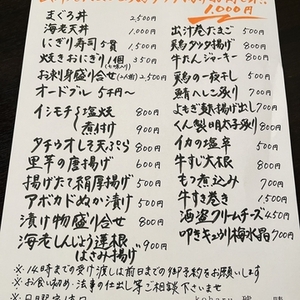 1,000円
まぐろ丼 2,500円
海老天丼 1,000円
にぎり寿司5貫 1,500円
焼きおにぎり1個 350円
お刺身盛り合せ(2人前) 2,500円
オードブル 5千円〜
イシモチ 塩焼 800円
煮付け 900円
タチウオしそ天ぷら 800円
里芋の唐揚げ 600円
揚げたて絹厚揚げ 500円
アボカドぬか漬け 500円
漬け物盛り合せ 800円
海老しんじょう蓮根はさみ揚げ 800円
出汁巻たまご 500円
鶏タタタ揚げ 800円
牛たんジャーキー 800円
鶏の一夜干し 500円
鯖へしこ炙り 700円
よもぎ麩揚げ出し 700円
くん製明太子炙り 800円
イカの塩辛 500円
牛すじ大根 800円
もつ煮込み 700円
牛すき煮 1,500円
酒盗クリームチーズ 450円
叩きキュウリ梅水晶 700円
※14時までの受け渡しは前日までの御予約をお願いします
※お食い初め・法事の仕出し等ご相談下さいませ